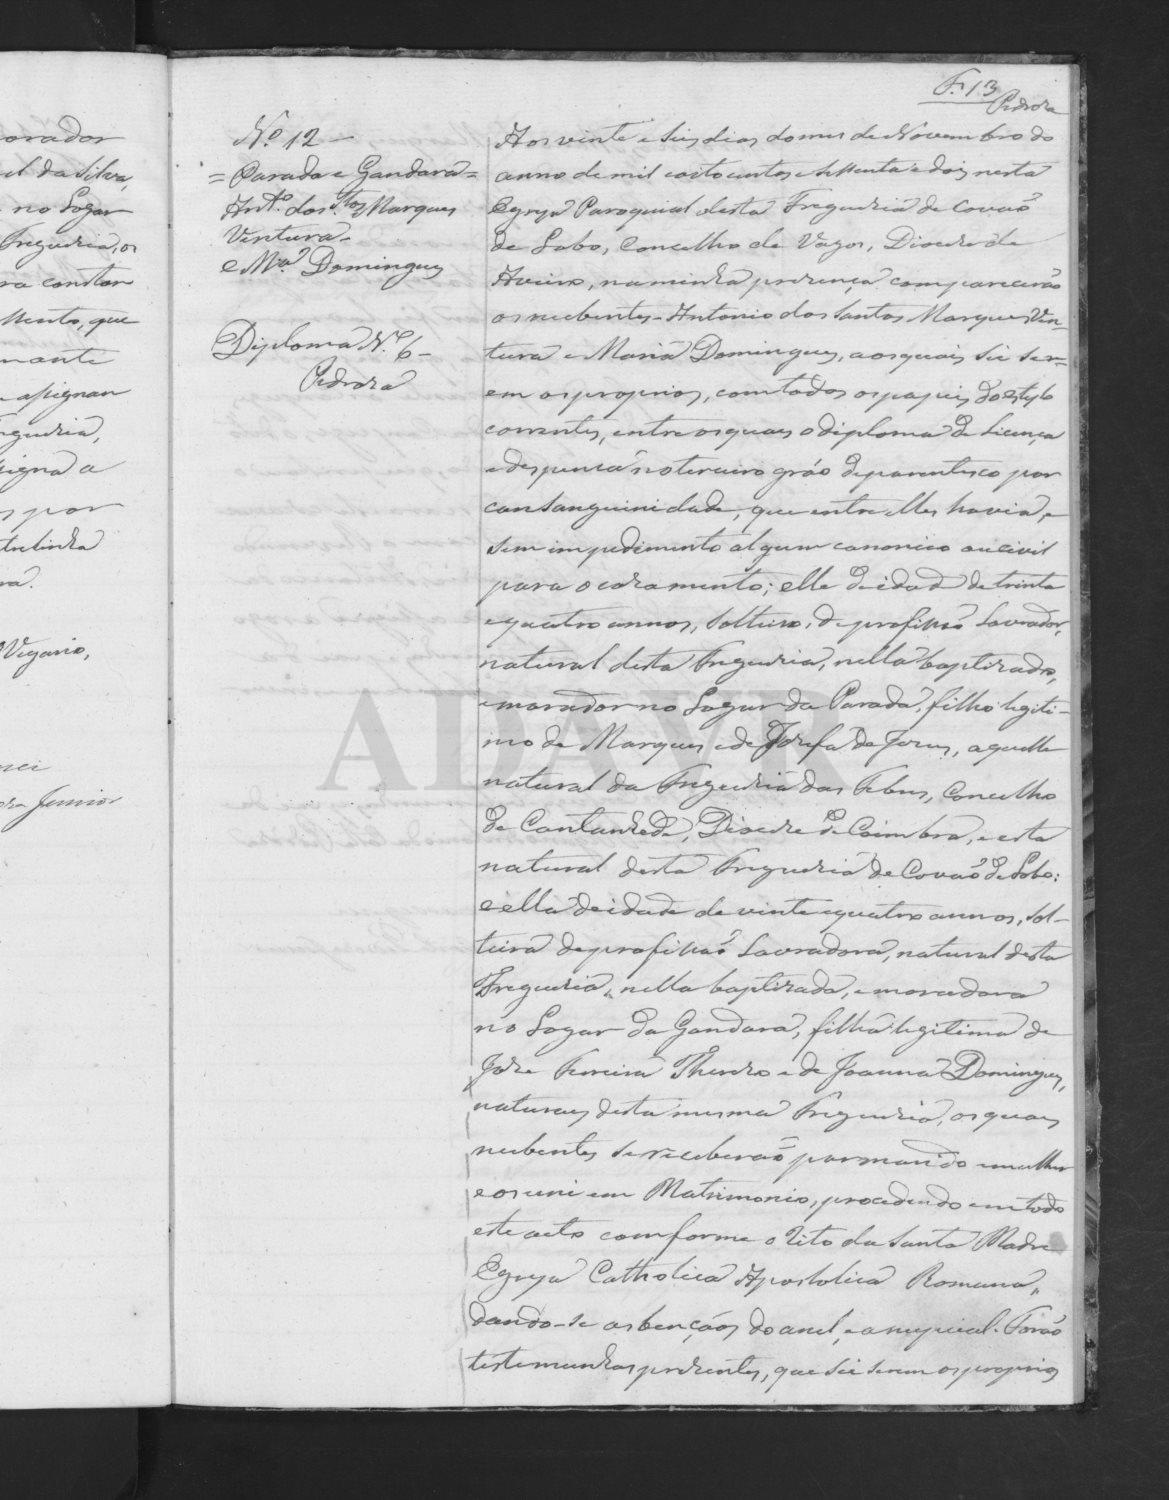 orador
el da Silva,
no Logar
Freguezia, os
ra constar
mento, que
mante
assignar
eguezia,
signa a
s por
trelinha
ra.
Vigario,
ora Junior
F. 13
Pedroza
Nº 12 -
= Parada e Gandara =
Antº dos Stos Marques
Ventura -
e Mª Domingues
Diploma Nº 6 -
Pedroza
Aos vinte e seis dias do mes de Novembro do
anno de mil oito centos e settenta e dois nesta
Egreja Paroquial desta Freguezia de Covaõ
de Lobo, Concelho de Vagos, Diocese de
Aveiro, na minha prezença compareceraõ
os nubentes - Antonio dos Santos Marques Ven-
tura e Maria Domingues, aos quais sei ser-
em os proprios, com todos os papeis do estylo
correntes, entre os quaes o diploma de Licença
e despensa no terceiro gráo de parentesco por
consanguinidade, que entre elles havia, e
sem impedimento algum canonico ou civil
para o cazamento; elle de idade de trinta
e quatro annos, solteiro, de profissaõ Lavrador,
natural desta Freguezia, nella baptizado,
e morador no Logar da Parada, filho legiti-
mo de Marques e de Jozefa de Jezus, aquelle
natural da Freguezia das Febres, Concelho
de Cantanhede, Diocese de Coimbra, e esta
natural desta Freguezia de Covaõ de Lobo:
e ella de idade de vinte e quatro annos, sol-
teira de profissaõ Lavradora, natural desta
Freguezia, nella baptizada, e moradora
no Logar da Gandara, filha legitima de
Joze Ferreira e de Joanna Domingues,
naturaes desta mesma Freguezia, os quaes
nubentes se receberaõ por marido e mulher
e os uni em Matrimonio, procedendo em todo
este acto comforme o Rito da Santa Madre
Egreja Catholica Apostolica Romana,
dando-se as bençãos do anel, e a nupcial. Foraõ
testemunhas prezentes, que sei serem os proprios
ADAVR